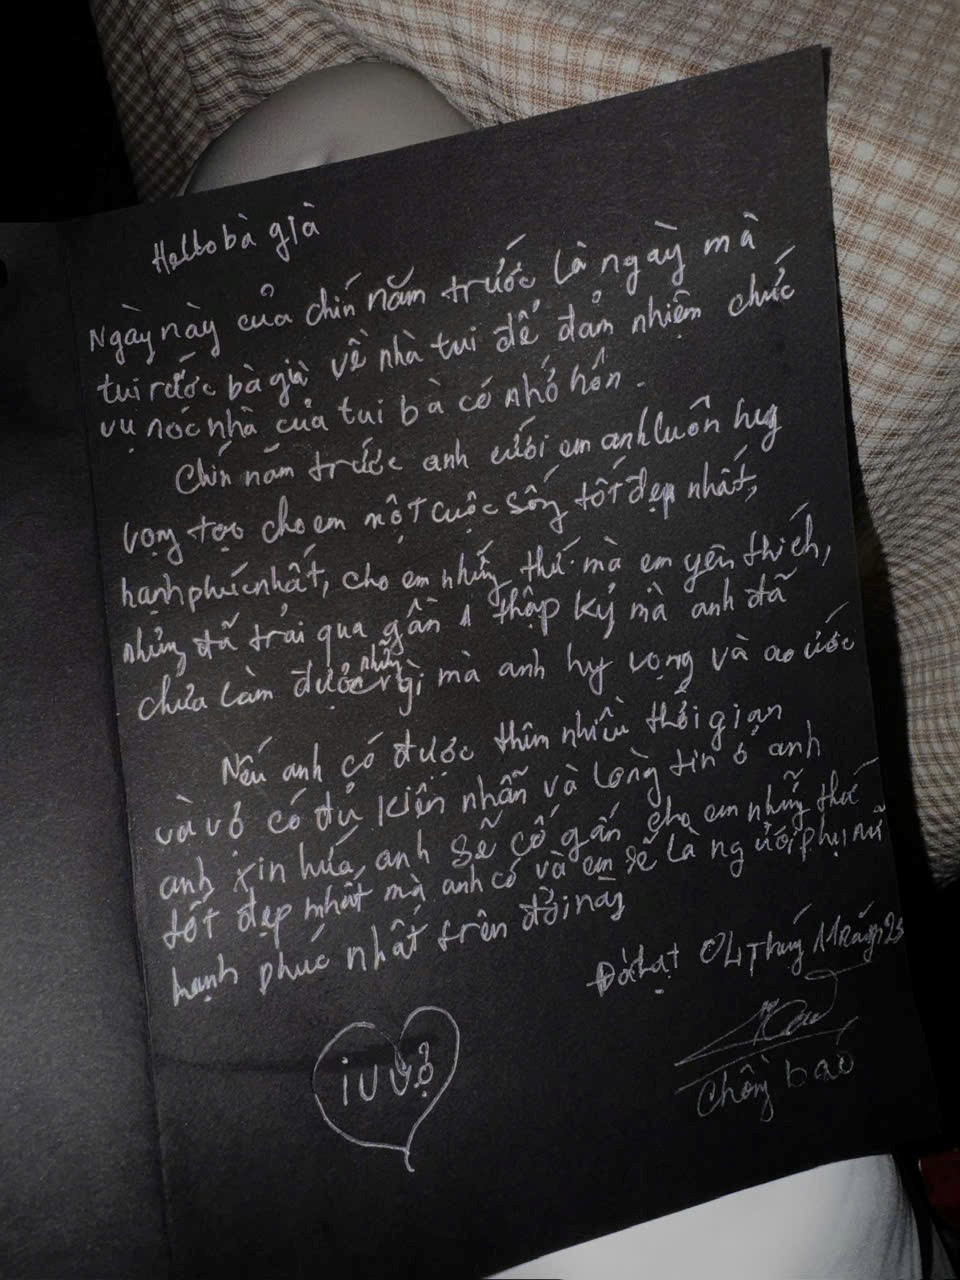 Hello bà già
Ngày này của chín năm trước là ngày mà
tui rước bà già về nhà tui để đảm nhiệm chức
vụ nóc nhà của tui bà có nhớ hôn.
Chín năm trước anh cưới em anh luôn hy
vọng tạo cho em một cuộc sống tốt đẹp nhất,
hạnh phúc nhất, cho em những thứ mà em yêu thích,
nhưng đã trải qua gần 1 thập kỷ mà anh đã
chưa làm được những gì mà anh hy vọng và ao ước
Nếu anh có được thêm nhiều thời gian
và vợ có đủ kiên nhẫn và lòng tin ở anh
anh xin hứa, anh sẽ cố gắng cho em những thứ
tốt đẹp nhất mà anh có và em sẽ là người phụ nữ
hạnh phúc nhất trên đời này
Đà Lạt 04 Tháng 11
iu vợ
Chồng